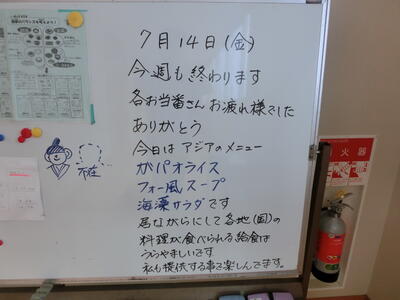 7月14日(金)
今週も終わります
各お当番さん お疲れ様でした
ありがとう
今日は アジアのメニュー
ガパオライス
フォー風スープ
海藻サラダです
居ながらにして各地(国)の
料理が食べられる給食は
うらやましいです
私も提供する事を楽しんでます。
不在
火器